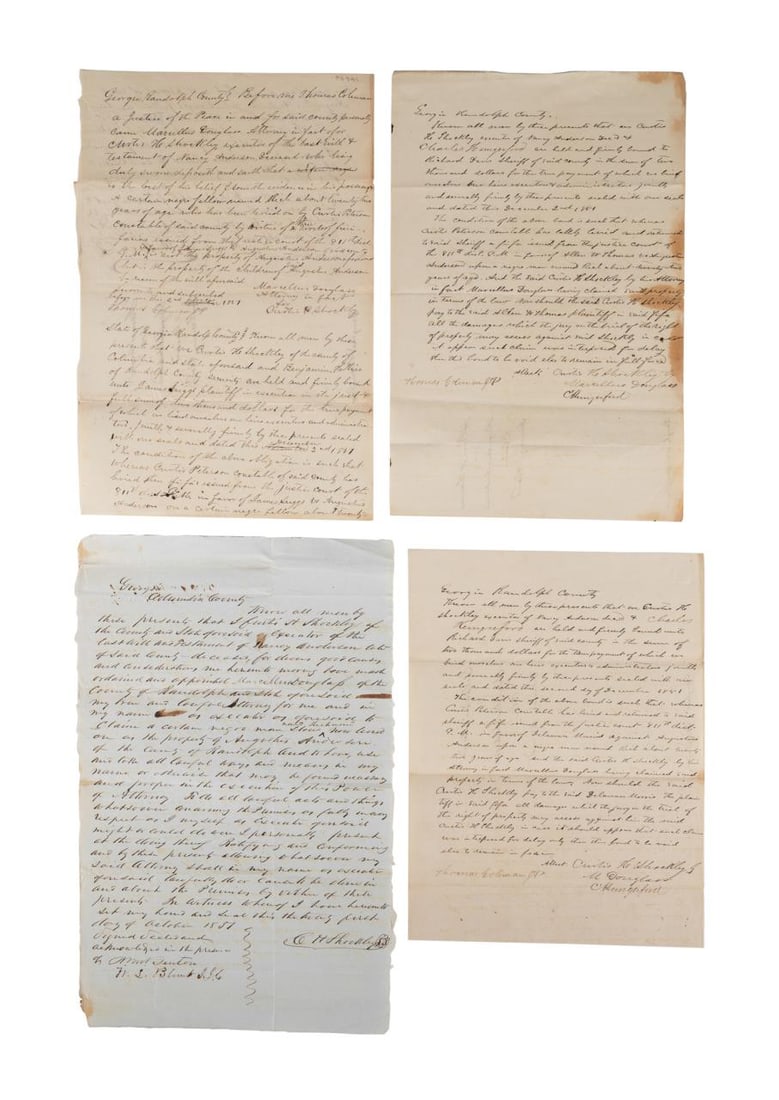 Georgia Randolph County Before me Thomas Coleman
a Justice of the Peace in and for said county personally
came Marcellus Douglass Attorney in fact for
Curtis H. Shockley executor of the last will &
testament of Nancy Anderson Deceased who being
duly sworn deposeth and saith that
to the best of his belief
a certain negro fellow named Rick about twenty two
years of age who has been levied on by Curtis Peterson
Constable of said county by virtue of
facias issued from the Justice court of the 811th Dist
G. M. the property of Augustus Anderson
but is the property of the children of Augustus Anderson
by reason of the will aforesaid
Sworn to and subscribed Marcellus Douglass
before me this 2nd 1851 Attorney in fact
Thomas Coleman JP for
Curtis H Shockley
State of Georgia Randolph County Know all men by these
presents that we Curtis H Shockley of the county of
Columbia and State aforesaid and Benjamin
of Randolph County are held and firmly bound
unto James Suggs plaintiff in execution in the just &
full sum of two thousand dollars for the true payment
of which we bind ourselves our heirs executors and administra
tors Jointly & severally firmly by these presents sealed
with our seals and dated this December 2nd 1851
The condition of the above obligation is such that
whereas Curtis Peterson constable of said county has
levied fifas issued from the justice court of the
811th in favor of James Suggs vs Augustus
Anderson on a certain negro fellow about twenty
Georgia Randolph County
Know all men by these presents that we Curtis
H. Shockley executor of Nancy Anderson Decd &
Charles Hungerford are held and firmly bound to
Richard Davis Sheriff of said county in the sum of two
thousand dollars for the true payment of which we bind
ourselves our heirs executors & administrators jointly
and severally firmly by these presents sealed with our seals
and dated this December 2nd 1851
The condition of the above bond is such that whereas
Curtis Peterson constable has levied and returned
to said Sheriff a fifa issued from the justice court of
the 811th Dist. G. M in favor of Allen & Thomas vs Augustus
Anderson upon a negro man named Rick about twenty two
years of age And the said Curtis H Shockley by his Attorney
in fact Marcellus Douglass having claimed said property
in terms of the law Now should the said Curtis H Shockley
pay to the said Allen & Thomas plaintiff in said fifa
all the damages which the jury on the trial of the right
of property may assess against said Shockley in case
it appear such claim was interposed for delay
then this bond to be void else to remain in full force
Attest Curtis H Shockley
Thomas Coleman JP Marcellus Douglass
C Hungerford
Georgia
Columbia County
Know all men by
these presents that I Curtis H Shockley of
the County and State aforesaid Executor of the
last Will and Testament of Nancy Anderson late
of said County deceased, for divers good causes
and considerations me hereunto moving have made
ordained and appointed Marcellus Douglass of the
County of Randolph and State aforesaid
my true and lawful attorney for me and in
my name as executor as aforesaid to
Claim a certain negro man now levied
on as the property of Augustus Anderson
of the County of Randolph and to
and take all lawful ways and means in my
name or otherwise that may be found necessary
and proper in the execution of this Power
of Attorney To do all lawful acts and things
whatsoever concerning the Premises as fully in every
respect as I myself as Executor aforesaid
might or could do were I personally present
at the doing thereof Ratifying and confirming
and by these presents allowing whatsoever my
said Attorney shall in my name as executor
aforesaid lawfully do or cause to be done in
and about the Premises by virtue of these
presents In witness whereof I have hereunto
set my hand and seal this the thirty first
day of October 1851
Signed Sealed and C H Shockley
acknowledged in the presence
of
W. L. Blunt J.I.C
Georgia Randolph County
Know all men by these presents that we Curtis H
Shockley executor of Nancy Anderson Decd & Charles
Hungerford are held and firmly bound unto
Richard Davis sheriff of said county in the sum of
two thousand dollars for the true payment of which we
bind ourselves our heirs executors & administrators jointly
and severally firmly by these presents sealed with our
seals and dated this second day of December 1851
The condition of the above bond is such that whereas
Curtis Peterson Constable has levied and returned to said
sheriff a fifa issued from the justice court 811th dist
G. M. in favor of against Augustus
Anderson upon a negro man named Rick about twenty
two years of age and the said Curtis H Shockley by his
attorney in fact Marcellus Douglass having claimed said
property in terms of the law, Now should the said
Curtis H Shockley pay to the said the plain
tiff in said fifa all damages which the jury on the trial of
the right of property may assess against him the said
Curtis H Shockley in case it should appear that such claim
was interposed for delay only then this bond to be void
else to remain in force
Attest Curtis H Shockley
Thomas Coleman JP M Douglass
C Hungerford